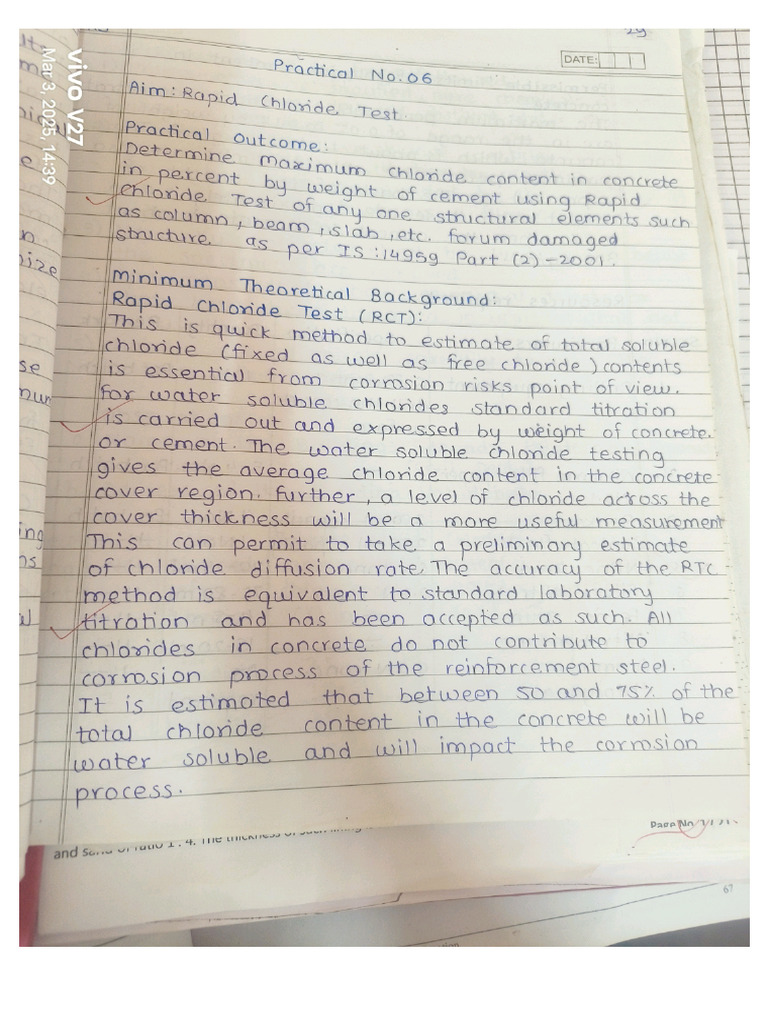 29
DATE:
Practical No. 06
Aim: Rapid Chloride Test
Practical Outcome:
Determine maximum chloride content in concrete
in percent by weight of cement using Rapid
Chloride Test of any one structural elements such
as column, beam, slab, etc. forum damaged
structure. as per IS:14959 Part (2)-2001.
Minimum Theoretical Background:
Rapid Chloride Test (RCT):
This is quick method to estimate of total soluble
chloride (fixed as well as free chloride) contents
is essential from corrosion risks point of view.
for water soluble chlorides standard titration
is carried out and expressed by weight of concrete.
or cement. The water soluble chloride testing
gives the average chloride content in the concrete
cover region. further, a level of chloride across the
cover thickness will be a more useful measurement
This can permit to take a preliminary estimate
of chloride diffusion rate. The accuracy of the RTC
method is equivalent to standard laboratory
titration and has been accepted as such. All
chlorides in concrete do not contribute to
corrosion process of the reinforcement steel.
It is estimated that between 50 and 75% of the
total chloride content in the concrete will be
water soluble and will impact the corrosion
process.
Page No
and
of ratio 1:4. The thickness of such
67
vivo V27
Mar 3, 2025, 14:39